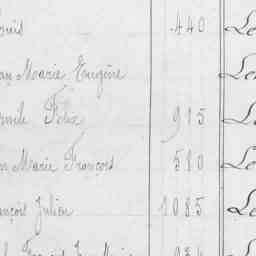 ouis 440 Lo
an Marie Eugène Lo
mile Félix 915 Lo
n Marie François 580 Lo
ançois Julien 1085 Lo